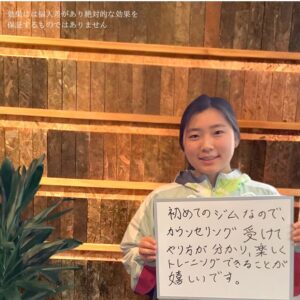 効果には個人差があり絶対的な効果を
保証するものではありません
初めてのジムなので、
カウンセリング受けて
やり方が分かり、楽しく
トレーニングできることが
嬉しいです。